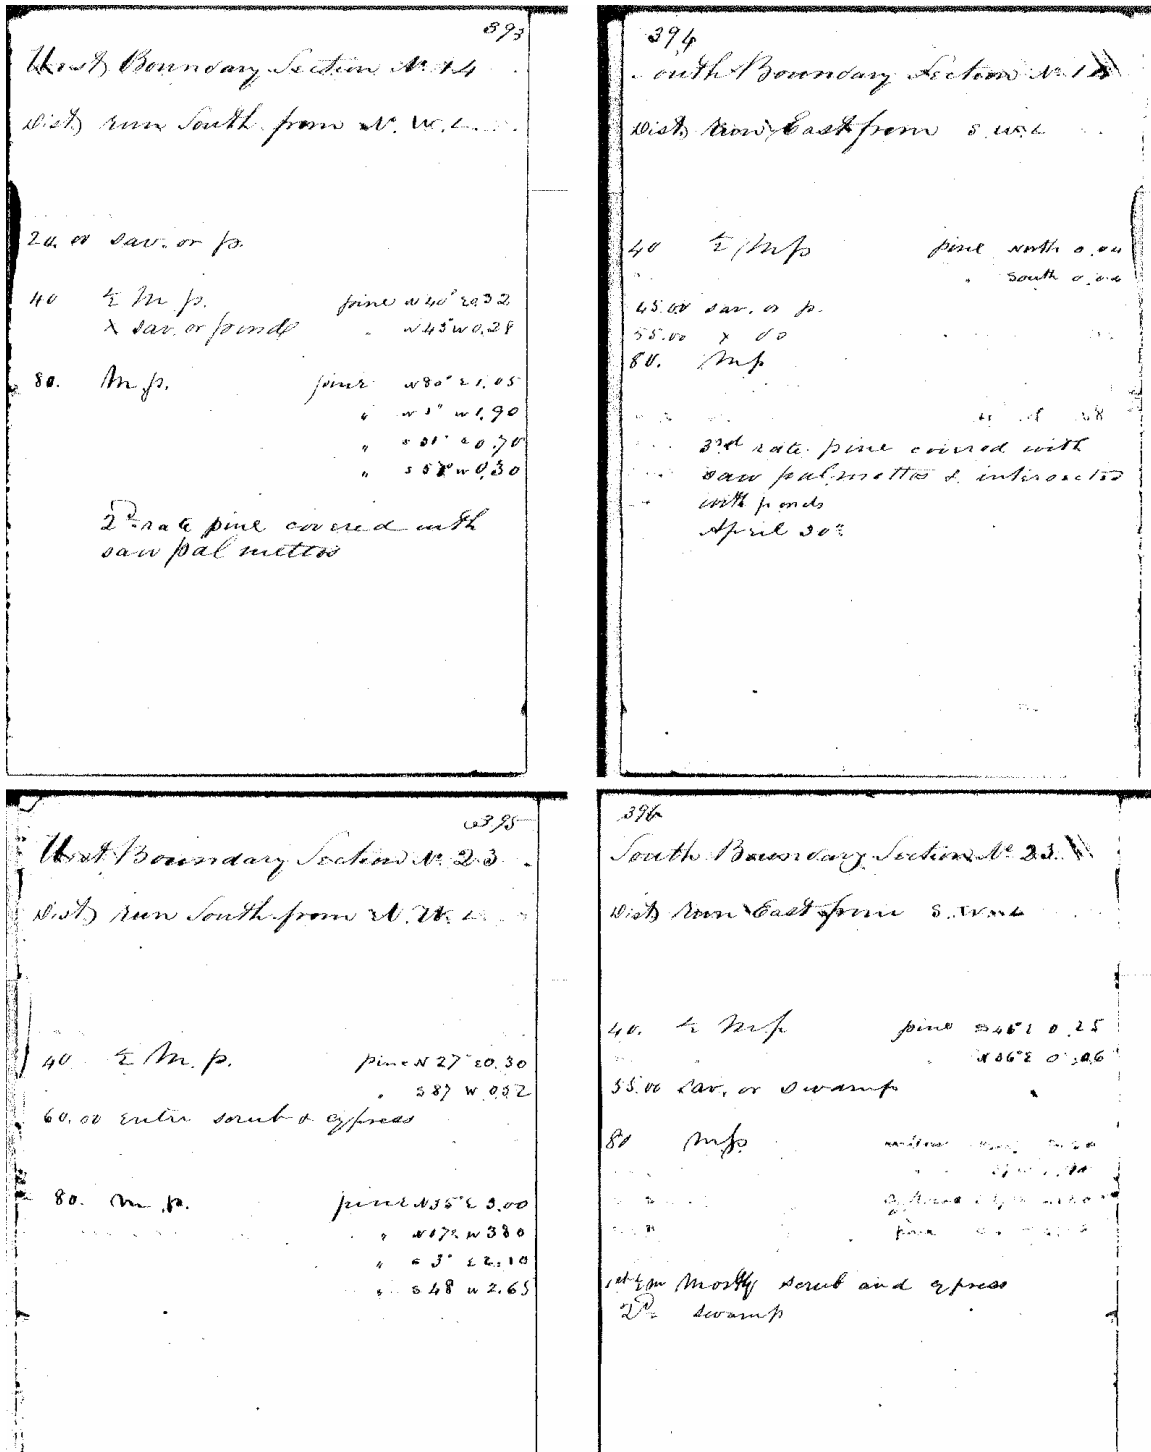 393
West Boundary Section No 14
Dist) run South from N. W. C.
20.00 sav. or p.
40 ½ M. p. pine N 40° E 0.32
X sav. or ponds " N 45 W 0.29
80. M. p. pine N 80° E 1.05
" N 3° W 1.90
" S 31° E 0.70
" S 58 W 0.30
2d rate pine covered with
saw pal mettos
394
South Boundary Section No
Dist) Run East from S. W. C
40 ½ M p pine North
" South
45.00 sav. or p.
55.00 X do
80. M p
3rd rate pine covered with
saw palmettos & intersected
with ponds
April 30th
395
West Boundary Section No 23
Dist) run South from N. W. C
40 ½ M. p. pine N 27° E 0.30
" S 87 W 0.52
60.00 enter scrub & cypress
80. M. p. pine N 35° E 3.00
" N 17° W 380
" S 3° E 2.10
" S 48 W 2.65
396
South Boundary Section No 23
Dist) Run East from S. W. C
40. ½ M. p pine S 46 E 0.25
N 36° E 0.06
55.00 sav. or swamp
80 M p
pine
1st ½ m Mostly scrub and cypress
2d swamp